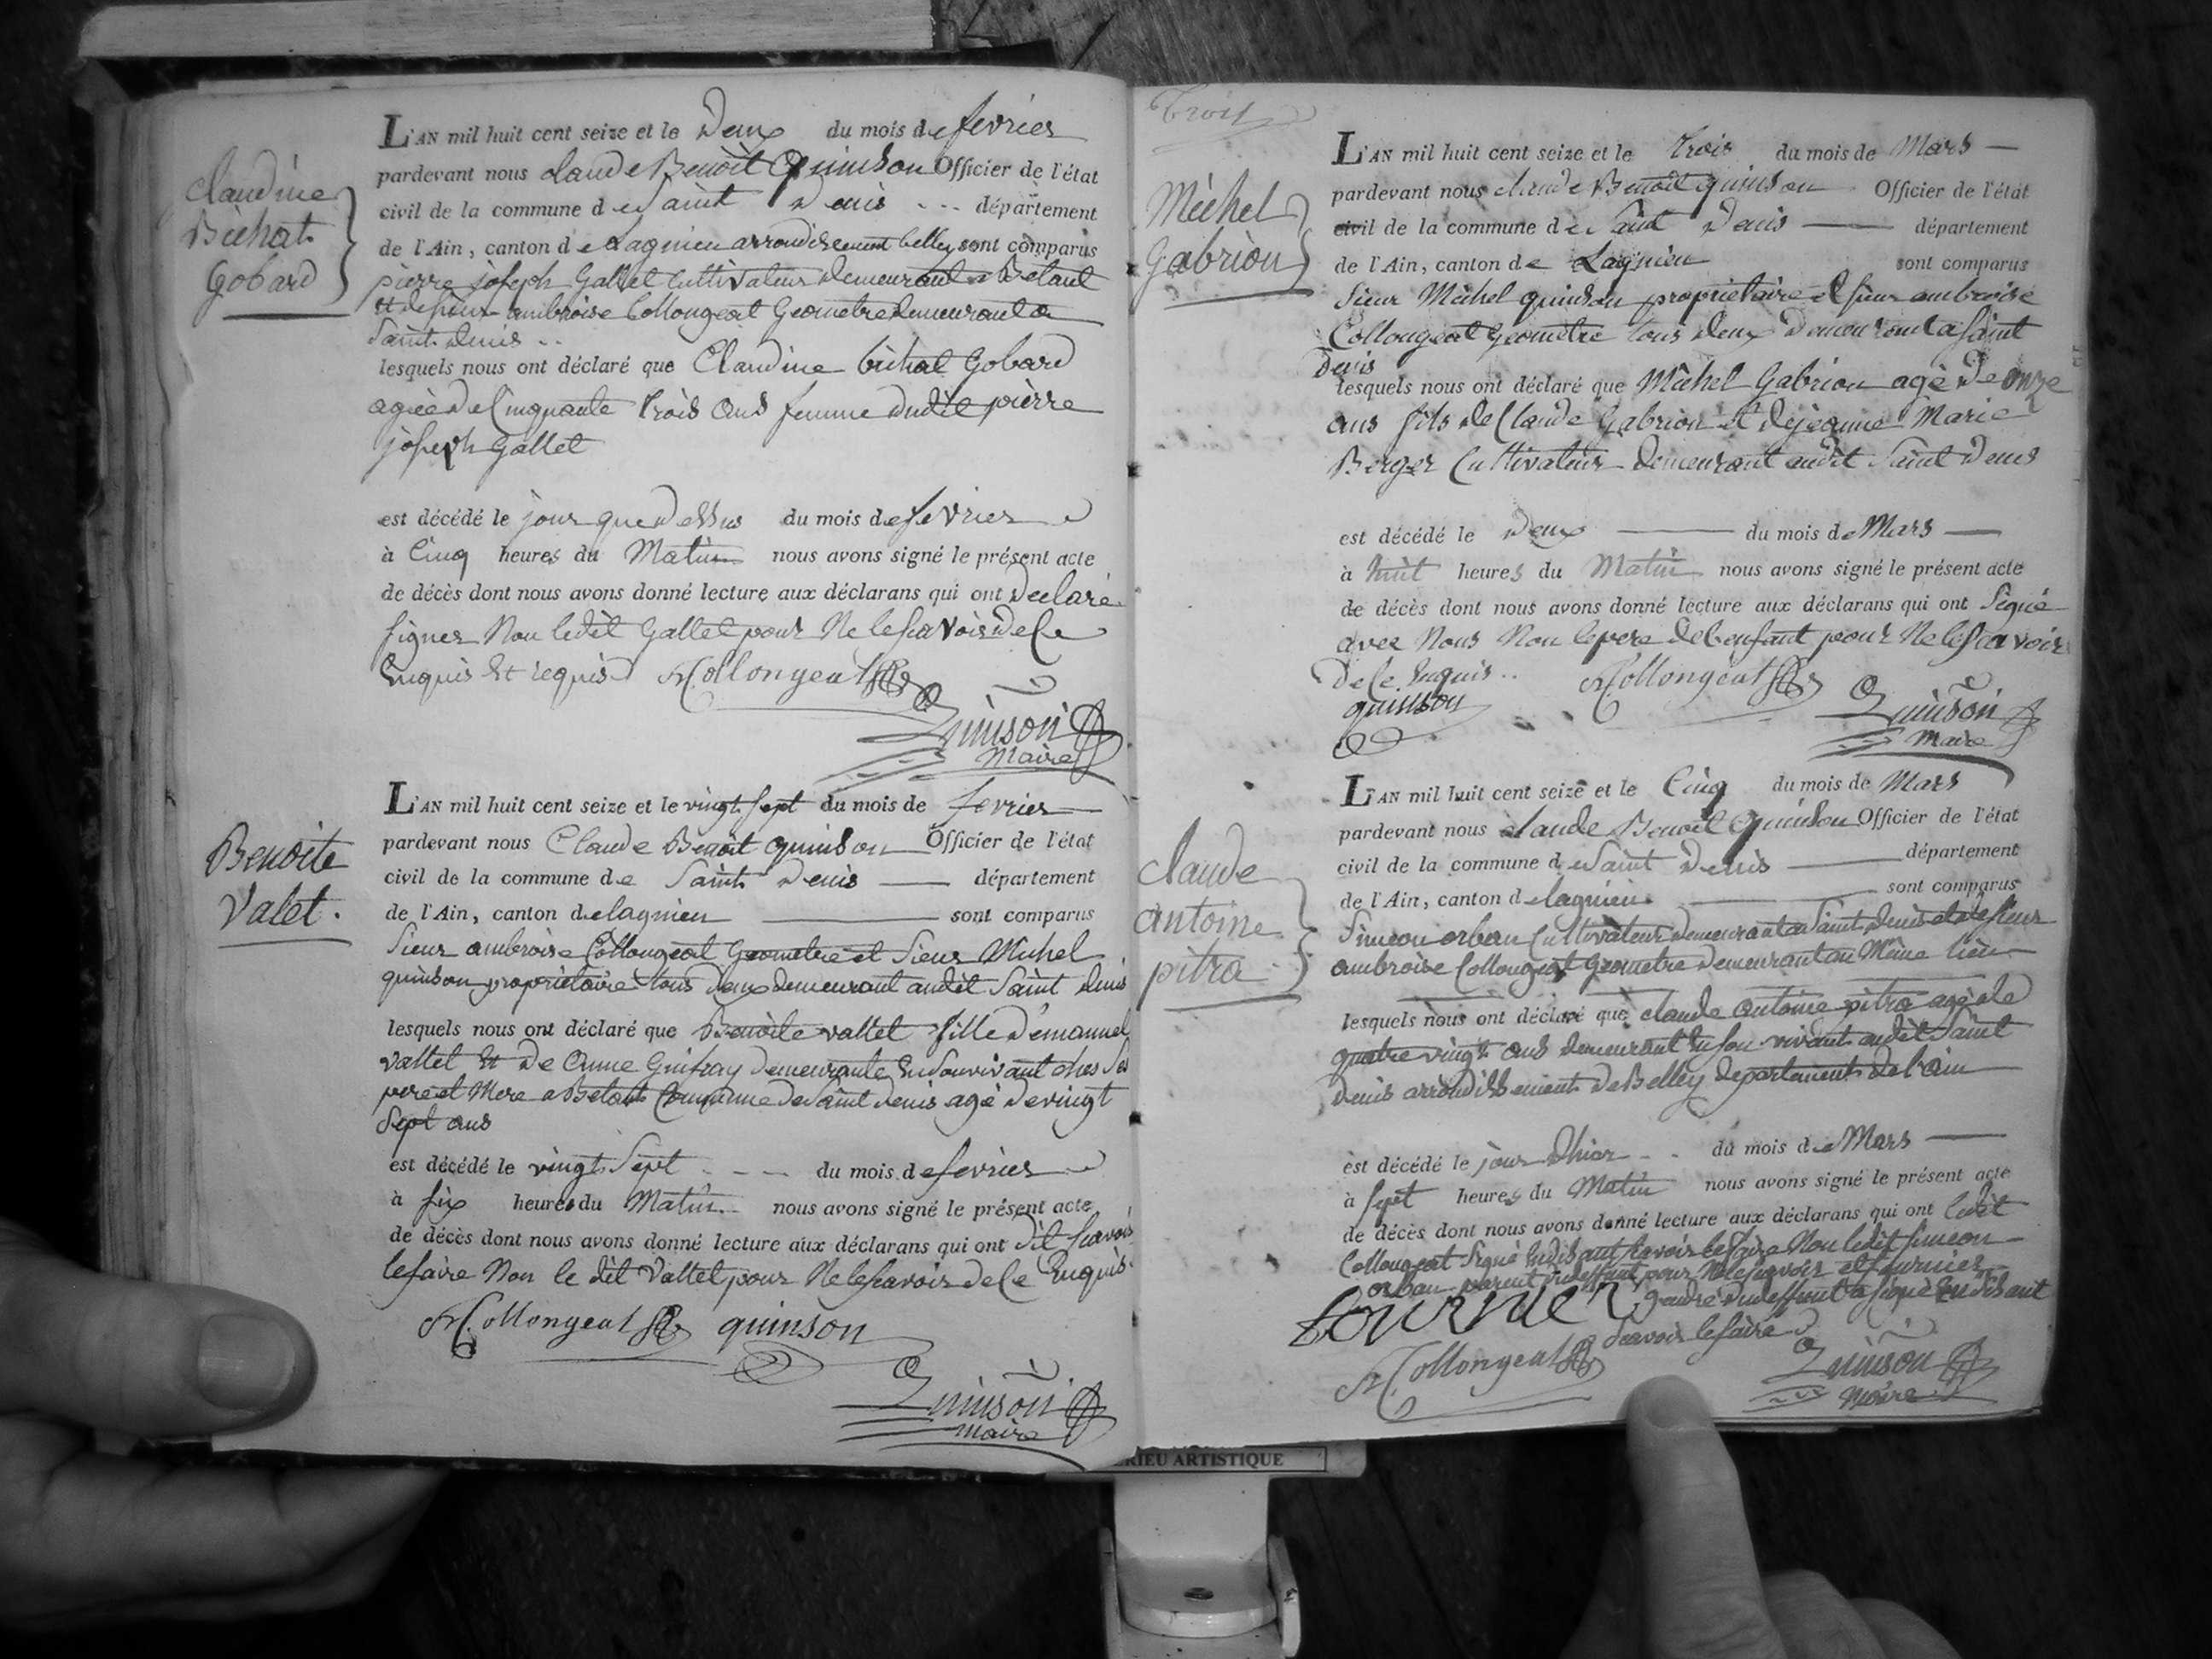 Claudine
Bichat
Gobard
L'AN mil huit cent seize et le Deux du mois de fevrier
pardevant nous Claude Benoit Quinson Officier de l'état
civil de la commune de Saint Denis département
de l'Ain, canton de Lagnieu arrondissement belley sont comparus
pierre joseph Gallet Cultivateur demeurant a Betant
et de sieur ambroise Collongeat Geometre demeurant a
Saint denis
lesquels nous ont déclaré que Claudine bichat Gobard
agée de Cinquante trois ans femme dudit pierre
joseph Gallet
est décédé le jour que dessus du mois de fevrier
à Cinq heures du Matin nous avons signé le présent acte
de décès dont nous avons donné lecture aux déclarans qui ont Declaré
signer Non ledit Gallet pour Ne le scavoir de Ce
Enquis Et requis Collongeat
Quinson
Maire
Benoite
Valet.
L'AN mil huit cent seize et le vingt sept du mois de fevrier
pardevant nous Claude Benoit quinson Officier de l'état
civil de la commune de Saint Denis département
de l'Ain, canton de lagnieu sont comparus
Sieur ambroise Collongeat Geometre et Sieur Michel
quinson proprietaire tous deux demeurant audit Saint denis
lesquels nous ont déclaré que Benoite vallet fille d'emanuel
vallet Et De Anne demeurante En Son vivant ches Ses
pere et Mere a Betant Commune de Saint denis agé de vingt
Sept ans
est décédé le vingt Sept du mois de fevrier
à six heures du Matin nous avons signé le présent acte
de décès dont nous avons donné lecture aux déclarans qui ont dit scavoir
le faire Non le dit Vallet pour Ne le scavoir de Ce Enquis.
Collongeat quinson
Quinson
maire
Trois
Michel
Gabrion
L'AN mil huit cent seize et le trois du mois de Mars
pardevant nous claude Benoit quinson Officier de l'état
civil de la commune de Saint Denis département
de l'Ain, canton de Lagnieu sont comparus
Sieur Michel quinson proprietaire et sieur ambroise
Collongeat Geometre tous deux Demeurant a Saint
Denis
lesquels nous ont déclaré que Michel Gabrion agé de onze
ans fils de Claude Gabrion et de jeanne Marie
Berger Cultivateur demeurant audit Saint Denis
est décédé le Deux du mois de Mars
à huit heures du Matin nous avons signé le présent acte
de décès dont nous avons donné lecture aux déclarans qui ont Signé
avec Nous Non le pere de l'enfant pour Ne le scavoir
De Ce Enquis Collongeat
quinson Quinson
maire
claude
antoine
pitra
L'AN mil huit cent seize et le Cinq du mois de Mars
pardevant nous claude Benoit Quinson Officier de l'état
civil de la commune de Saint Denis département
de l'Ain, canton de lagnieu sont comparus
Simeon orban Cultivateur demeurant a Saint denis et de sieur
ambroise Collongeat Geometre demeurant au Même lieu
lesquels nous ont déclaré que claude antoine pitra agé de
quatre vingt ans demeurant En son vivant audit Saint
denis arrondissement de Belley departement de l'ain
est décédé le jour dhier du mois de Mars
à sept heures du Matin nous avons signé le présent acte
de décès dont nous avons donné lecture aux déclarans qui ont ledit
Collongeat Signé Endisant scavoir le faire Non ledit simeon
orban parent du deffunt pour Ne le scavoir et fournier
fournier gendre du deffunt a signé Endisant
scavoir le faire
Collongeat Quinson
Maire
RIEU ARTISTIQUE